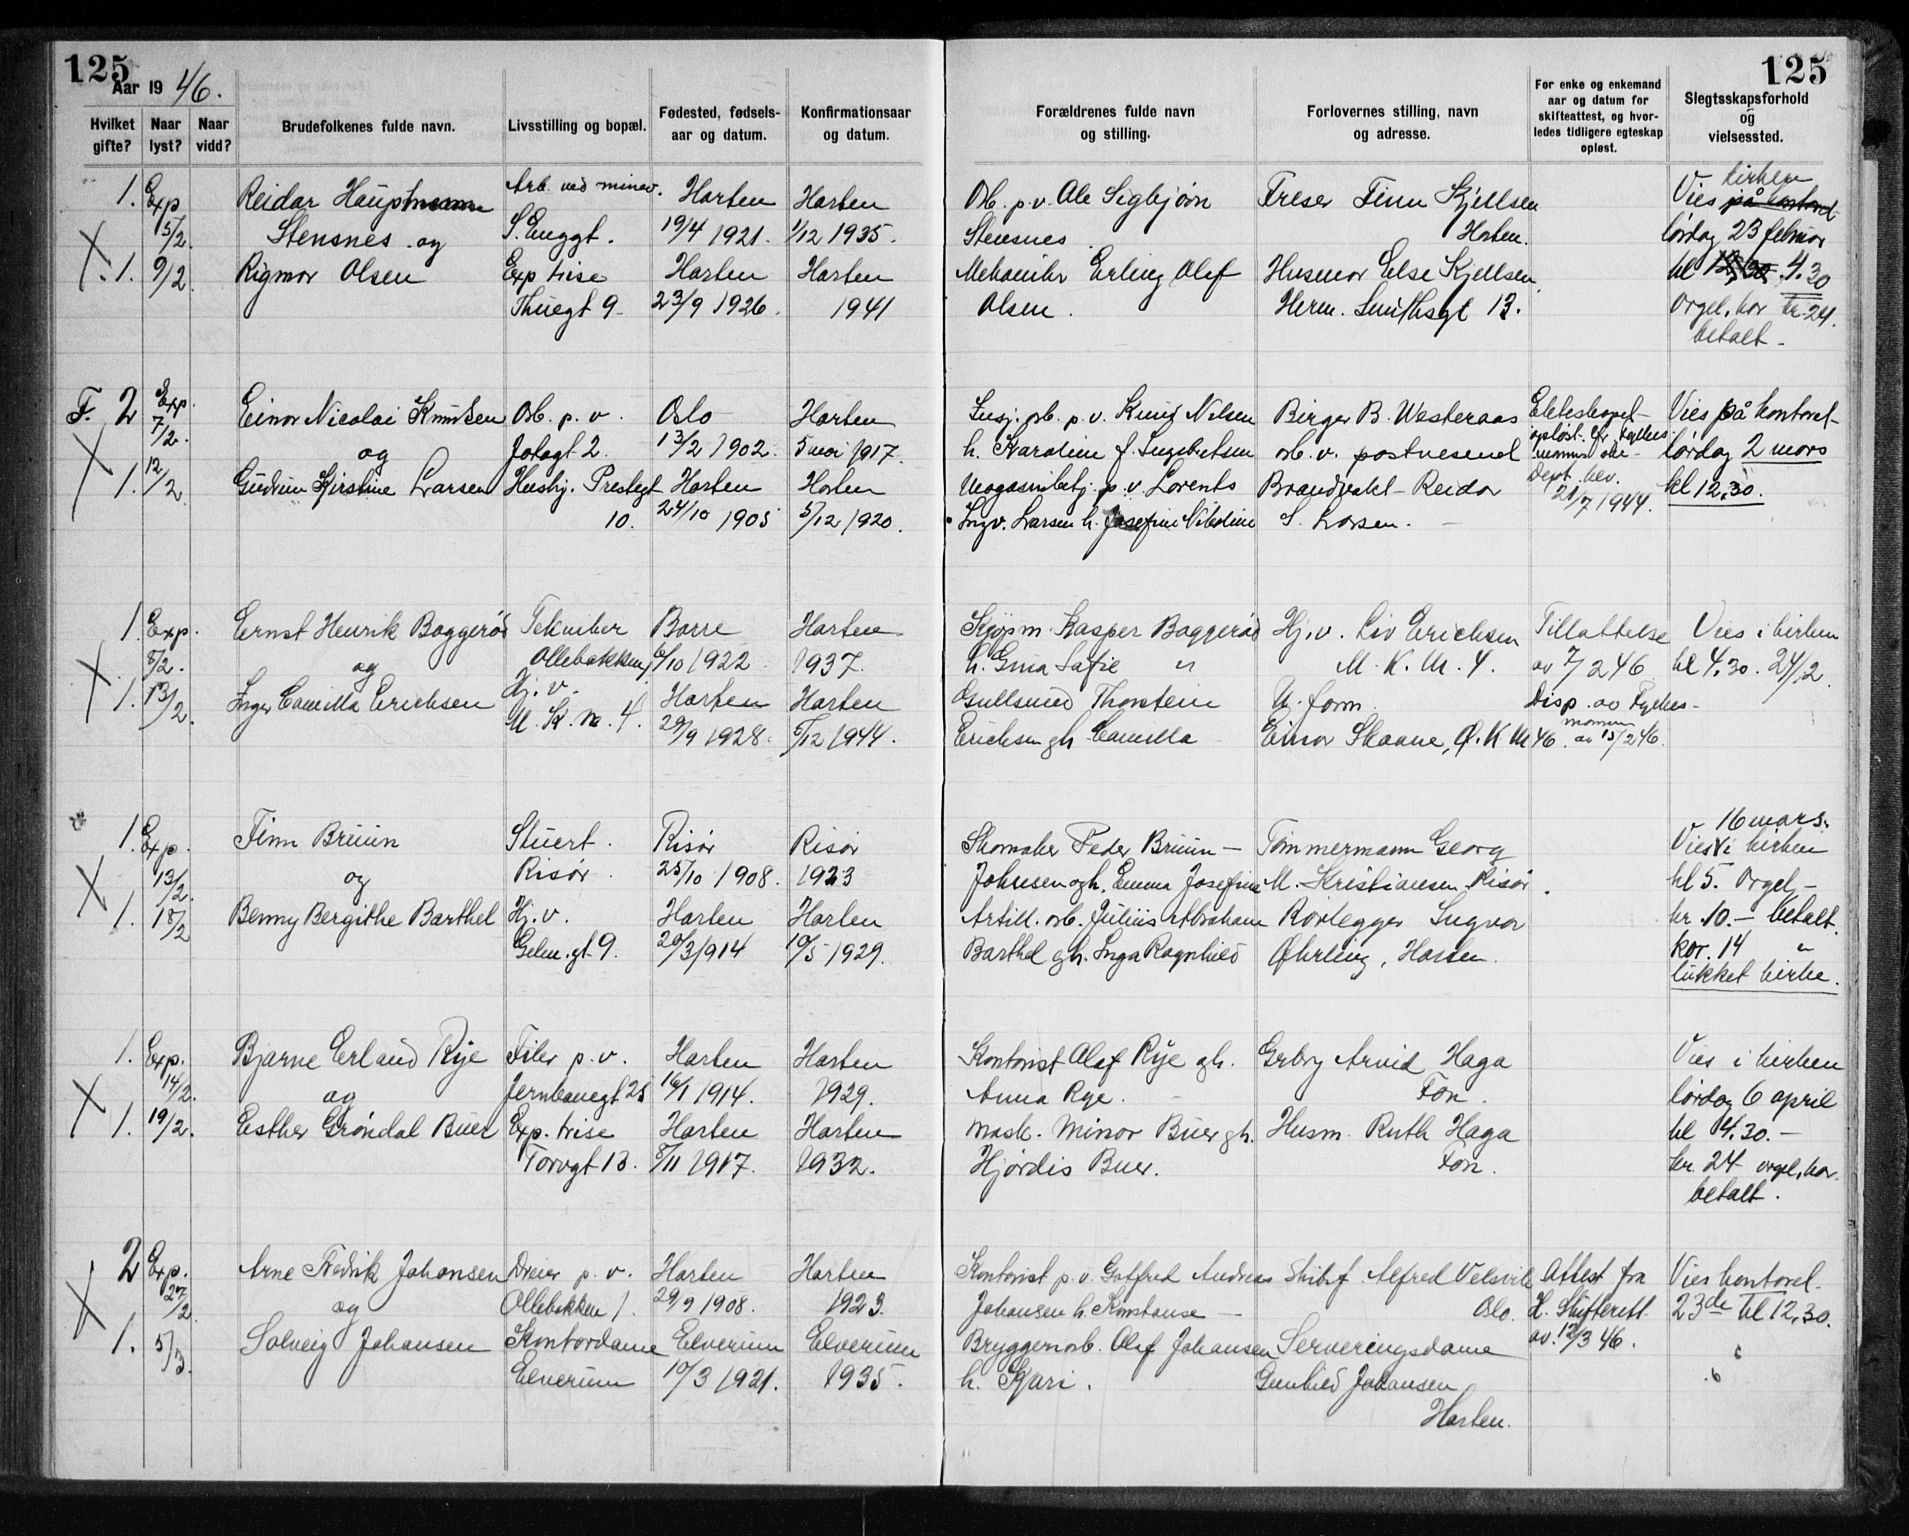 125
125
Aar 19 46.
Hvilket gifte?
Naar lyst?
Naar vidd?
Brudefolkenes fulde navn.
Livsstilling og bopæl.
Fødested, fødselsaar og datum.
Konfirmationsaar og datum.
Forældrenes fulde navn og stilling.
Forlovernes stilling, navn og adresse.
For enke og enkemand aar og datum for skifteattest, og hvorledes tidligere egteskap opløst.
Slegtsskapsforhold og vielsessted.
1. Exp Reidar Hauptmann Arb. ved minev. Horten Horten Arb. p.v. Ole Sigbjørn Freser Finn Kjellsen Vies kirken på kontoret
15/2. Stensnes og S. Enggt. 19/4 1921. 1/12 1935. Stensnes Horten. lørdag 23 februar
X 1. 9/2. Rigmor Olsen Exp. trise Horten Horten Mekaniker Erling Olaf Husmor Else Kjellsen kl 12,30 4.30
Thuegt 9 23/9 1926. 1941 Olsen. Herm. Smithsgt 13. Orgel, kor kr. 24.
betalt.
F. 2 Exp. Einar Nicolai Knutsen Arb. p.v. Oslo Horten p.v. Knut Nilsen Birger B. Westeraas Vies på kontoret
7/2. og 2. 13/2 1902. 5 1917. h. Karoline f. Ingebretsen arb. v. postvesenet opløst lørdag 2 mars
X 1. 12/2 Gudrun Kirstine Larsen Husbj. Prestegt Horten Horten p.v. Lorents Brandvakt Reidar Dept. bev. kl 12,30.
10. 24/10 1905 5/12 1920. Ingv. Larsen h. Josefine S. Larsen. 21/7 1944.
1. Exp. Ernst Henrik Baggerød Tekniker Borre Horten Kjøpm. Kasper Baggerød Hj.v. Liv Erichsen Tillattelse Vies i kirken
8/2. og Ollebakken 6/10 1922 1937. h. Gina Sofie " M.K.M. 4. av 7/2 46 kl 4.30. 24/2.
X 1. 13/2 Inger Camilla Erichsen Hj.v. Horten Horten Gullsmed Thorstein U. form. Disp. av Fylkes-
M.K.M. 4. 29/9 1928. 5/12 1944. Erichsen gh Camilla Einar Skaane, Ø.K.M 46. mannen av 15/2 46.
1. Exp. Finn Bruun Stuert. Risør Risør Skomaker Peder Bruun Tømmermann Georg 16 mars. Vies i kirken
13/2. og Risør. 25/10 1908. 1923 Johnsen gh. Emma Josefine M. Kristiansen Risør. kl 5. Orgel
X 1. 18/2 Benny Bergithe Barthel Hj.v. Horten Horten Artill. arb. Julius Abraham Rørlegger Ingvar kr. 10.— betalt.
gt 9. 20/3 1914 10/5 1929. Barthel gh. Inga Ragnhild Øhrling, Horten. kor. 14 "
lukket kirke.
1. Exp. Bjarne Erland Rye Filer p.v. Horten Horten Kontorist Olaf Rye gh. Grbry Arvid Haga Vies i kirken
14/2. og Jernbanegt 25 16/1 1914. 1929. Anna Rye. Fon. lørdag 6 april
X 1. 19/2. Esther Grøndal Buer Exp. trise Horten Horten Mask. Minor Buer gh. Husm. Ruth Haga kl 14.30.—
Torvgt 13. 8/11 1917. 1932. Hjørdis Buer. Fon. kr. 24 orgel, kor
betalt.
2 Exp. Arne Fredrik Johansen Dreier p.v. Horten Horten Kontorist p.v. Gotfred Andreas Skibsf. Alfred Velsvik Attest fra Vies kontoret
27/2. og Ollebakken 1. 29/9 1908. 1923. Johansen h. Konstanse Oslo. H. Skifterett 23de kl 12,30.
X 1. 5/3. Solveig Johansen Kontordame Elverum Elverum Bryggeriarb. Olaf Johansen Serveringsdame av. 12/3 46.
Elverum 10/3 1921. 1935. h. Kjari. Gunhild Johansen
Horten.